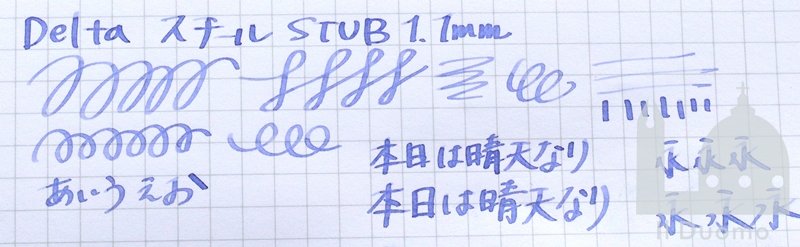 Delta スチール STUB 1.1mm
本日は晴天なり 永永永
あいうえお 本日は晴天なり 永永永
Il Duomo